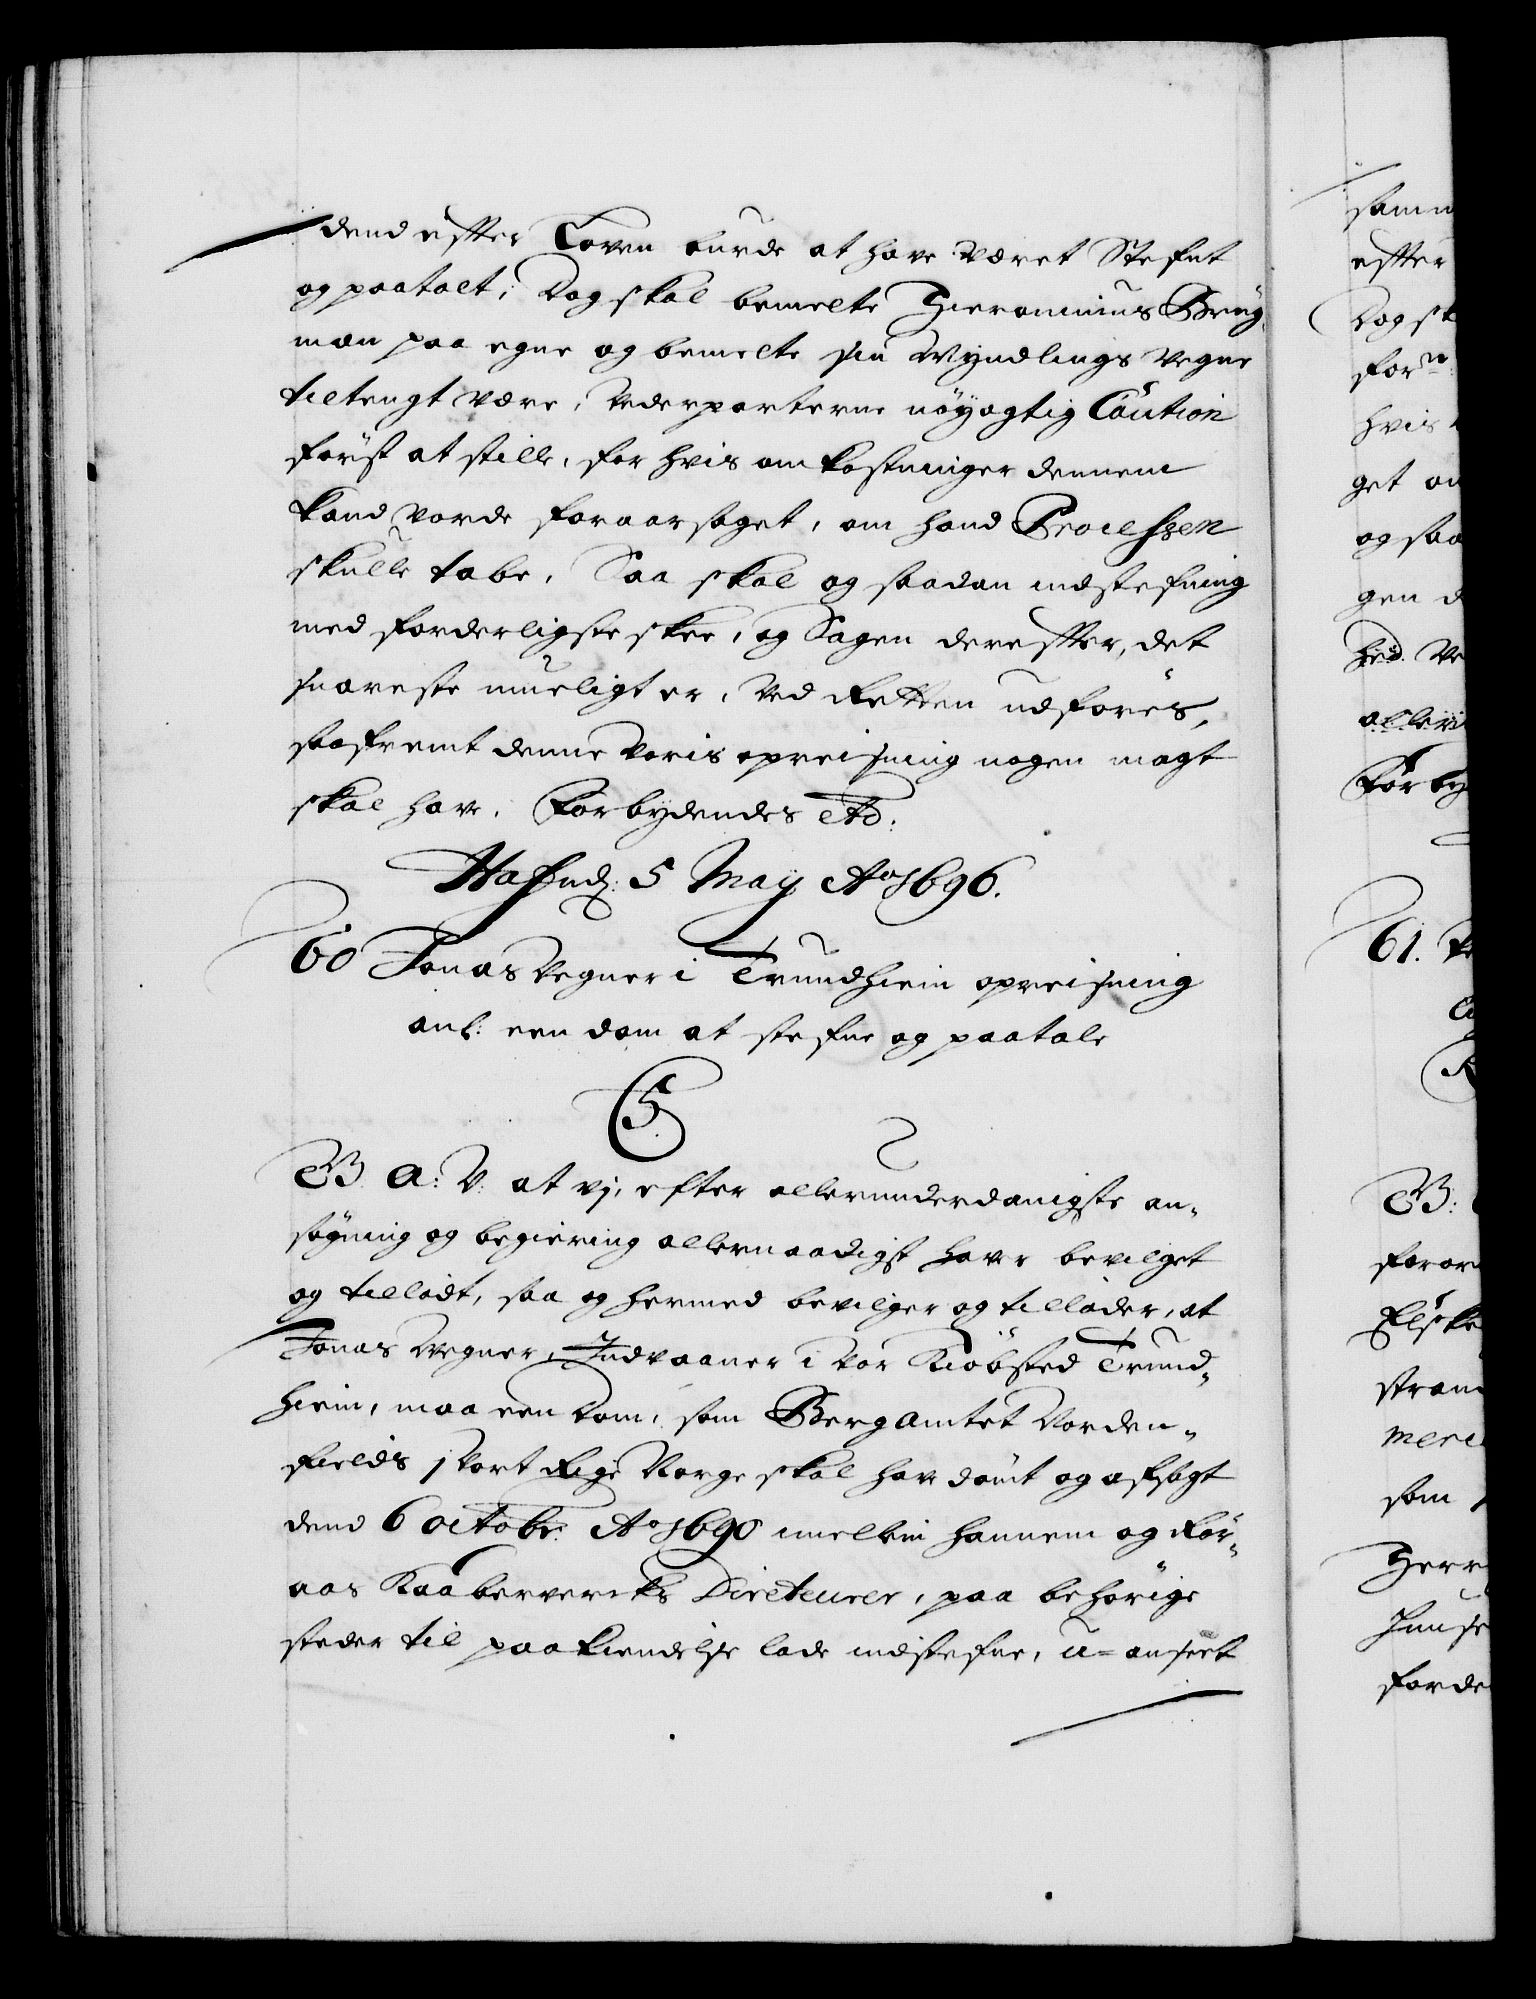 dend efter Loven burde at have været Stefnt
og paatalt; Dog skal bemelte Hieronimus Brüg¬
man paa egne og bemelte sin Myndlings Vegne
tiltengt være, Vederparterne nöyagtig Caution
först at stille, for hvis omkostninger dennem
kand vorde foraarsaget, om hand Processen
skulle tabe, Saa skal og saadan indstefning
med forderligste skee, og Sagen derefter, det
snareste mueligt er, Ved Retten udföres,
saafremt denne Voris opreisning nogen magt
skal have. Forbydendes etc:
Hafnd: 5 Maij Ao 1696.
60 Jonas Vegner i Trundhiem opreisning
anl: een dom at stefne og paatale
C5
G: A: V: at vj, efter allerunderdanigste an„
søgning og begiering allernaadigst haver bevilget
og tilladt, saa og hermed bevilger og tillader, at
Jonas Vegner, Indvaaner i Vor Kiöbsted Trund„
hiem, maa een Dom, som Bergamtet Norden„
fields i Vort Rige Norge skal have dömt og afsagt
dend 6 octobr: Ao 1690 imellem hannem og Rör„
aas Kaaberverks Directeurer, paa behörige
steder til paakiendelse lade indstefne, u-anseet
samm
efter
Dog sk
forne:
hvis
get om
og saa
gen d
hed. Ve
allern
Forby
61.
G:
foror
Elske
stran
merc
som
Herr
huuse
forde